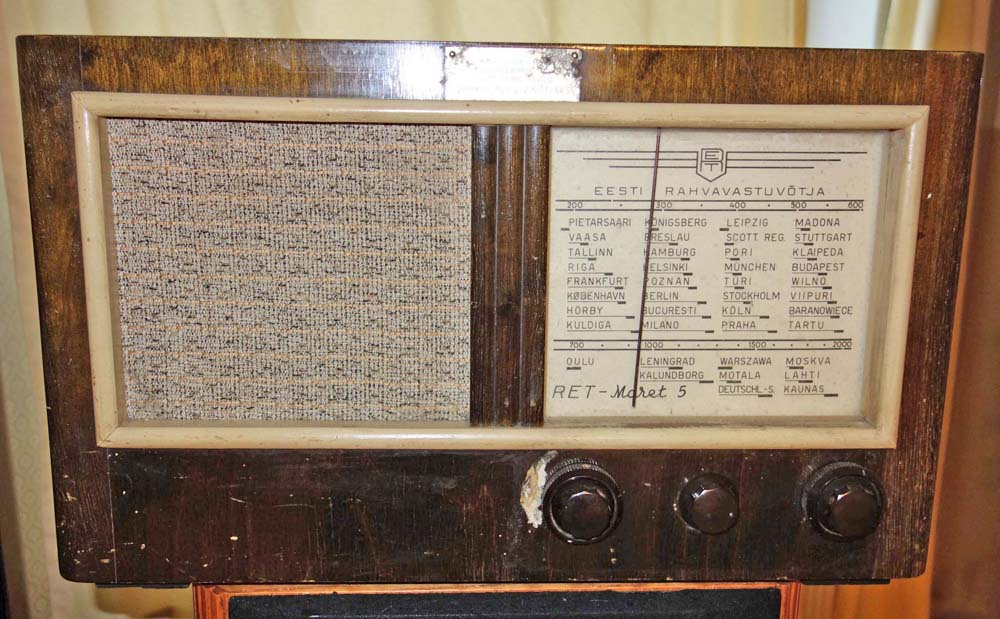 RET
EESTI RAHVAVASTUVÕTJA
200 300 400 500 600
PIETARSAARI KÖNIGSBERG LEIPZIG MADONA
VAASA BRESLAU SCOTT REG. STUTTGART
TALLINN HAMBURG PORI KLAIPEDA
RIGA HELSINKI MÜNCHEN BUDAPEST
FRANKFURT POZNAN TÜRI WILNO
KØBENHAVN BERLIN STOCKHOLM VIIPURI
HÖRBY BUCURESTI KÖLN BARANOWIECE
KULDIGA MILANO PRAHA TARTU
700 1000 1500 2000
OULU LENINGRAD WARSZAWA MOSKVA
KALUNDBORG MOTALA LAHTI
DEUTSCHL-S. KAUNAS
RET-Maret 5